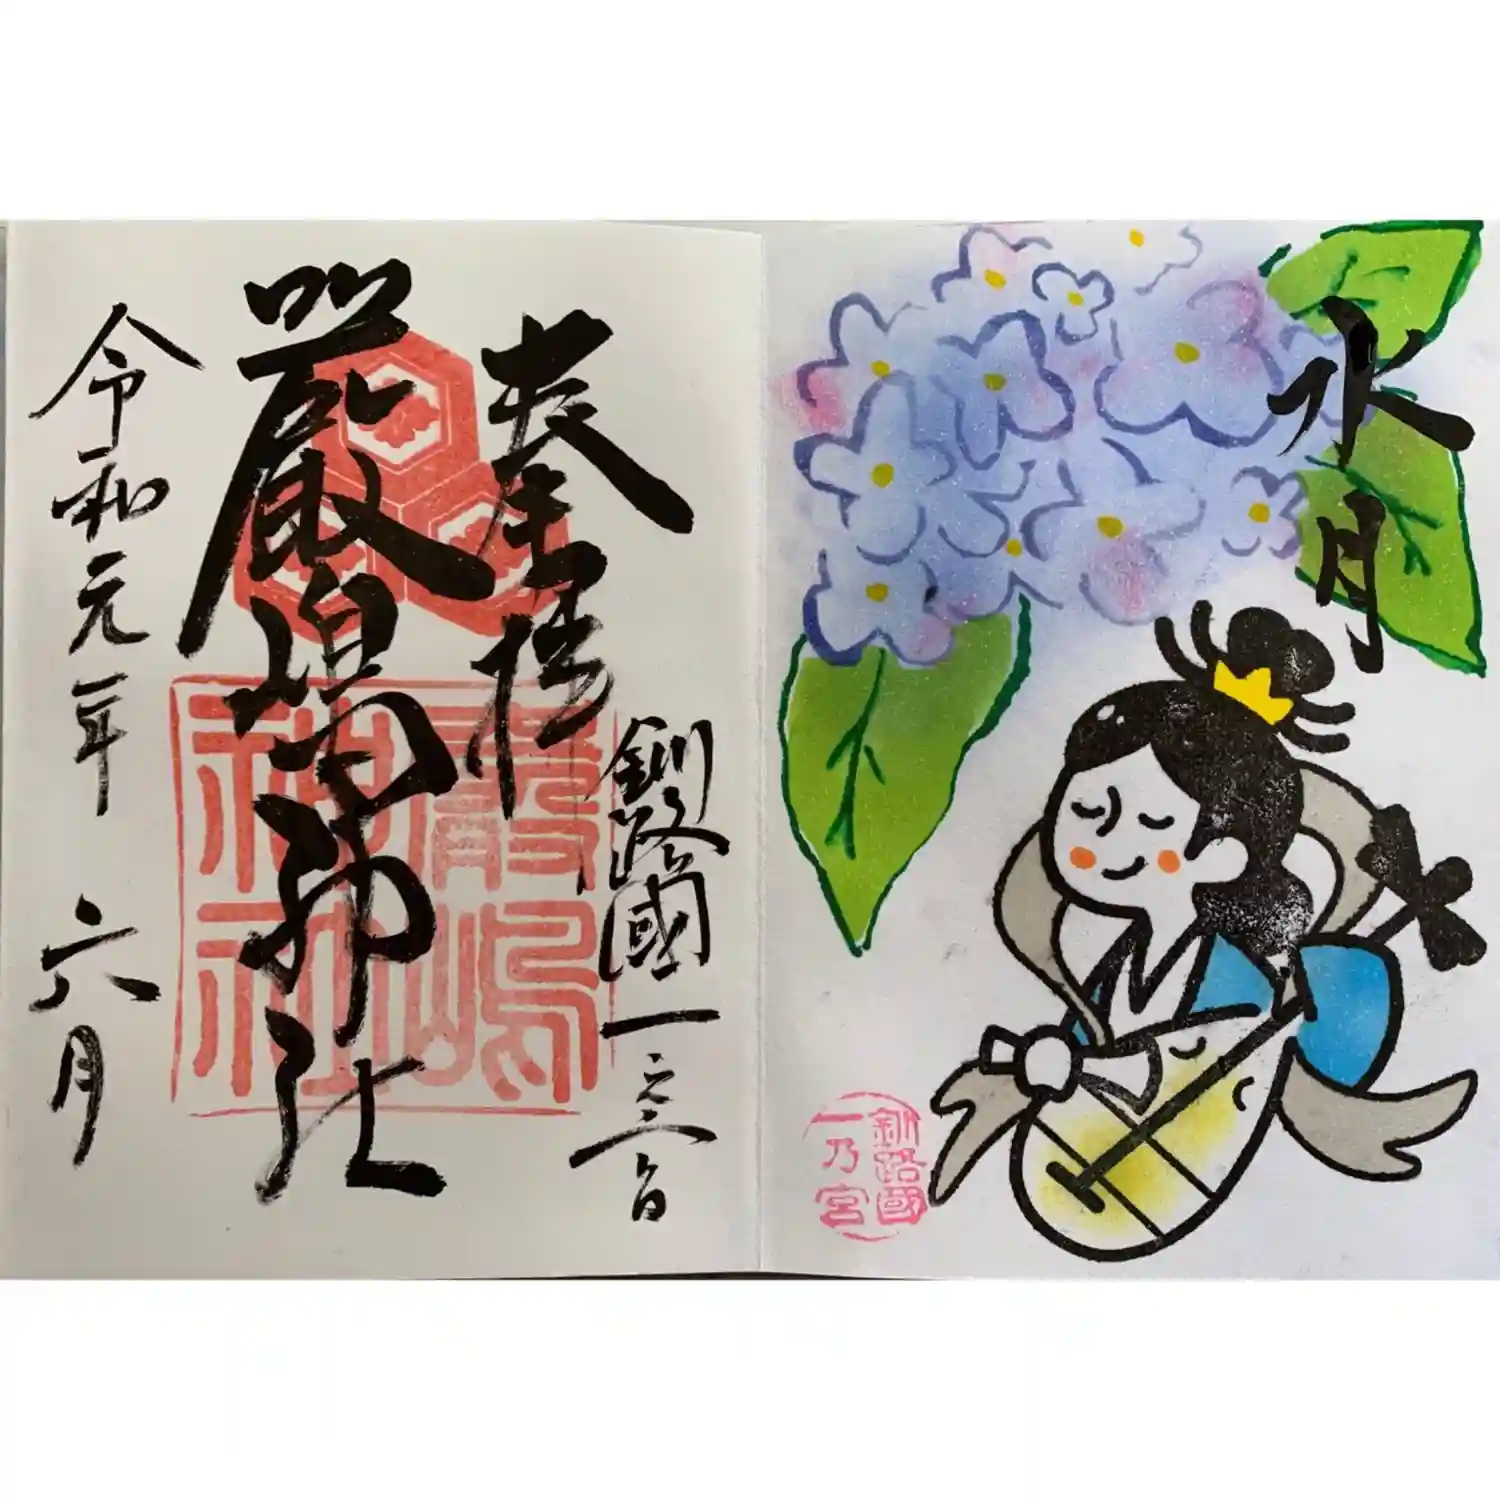 水月
釧路國
一乃宮
奉拝
釧路國一之宮
厳島神社
嚴嶋
神社
令和元年 六月